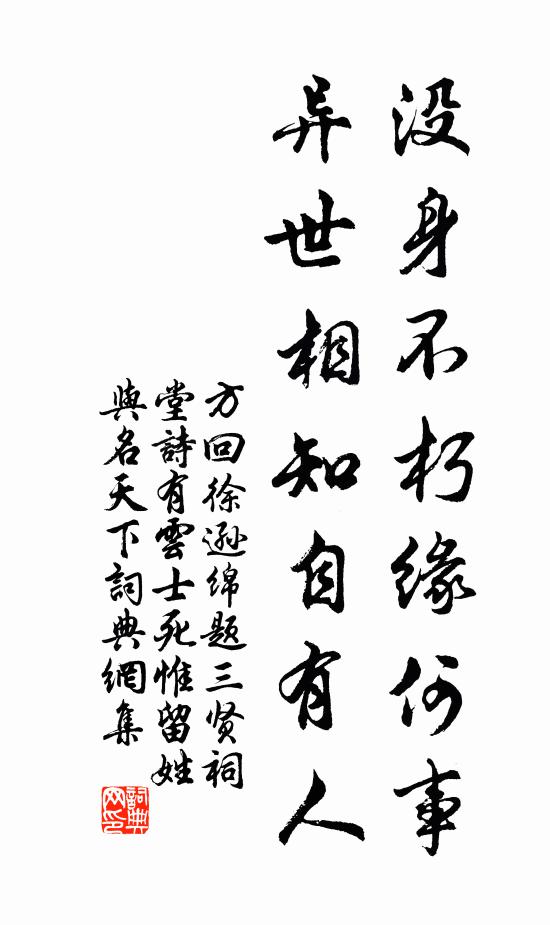 没身不朽缘何事
异世相知自有人
方回徐逊绵题三贤祠
堂詩有雲士死惟留姓
與名天下詞典網集
詞典网印